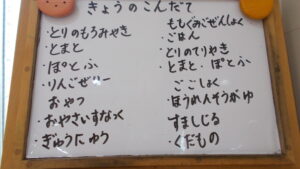 きょうのこんだて
・とりのもろみやき
・とまと
・ぽとふ
・りんごぜりー
おやつ
・おやさいすなっく
・ぎゅうにゅう
もぐもぐごぜんしょく
・ごはん
・とりのてりやき
・とまと・ぽとふ
ごごしょく
・ほうれんそうがゆ
すましじる
・くだもの